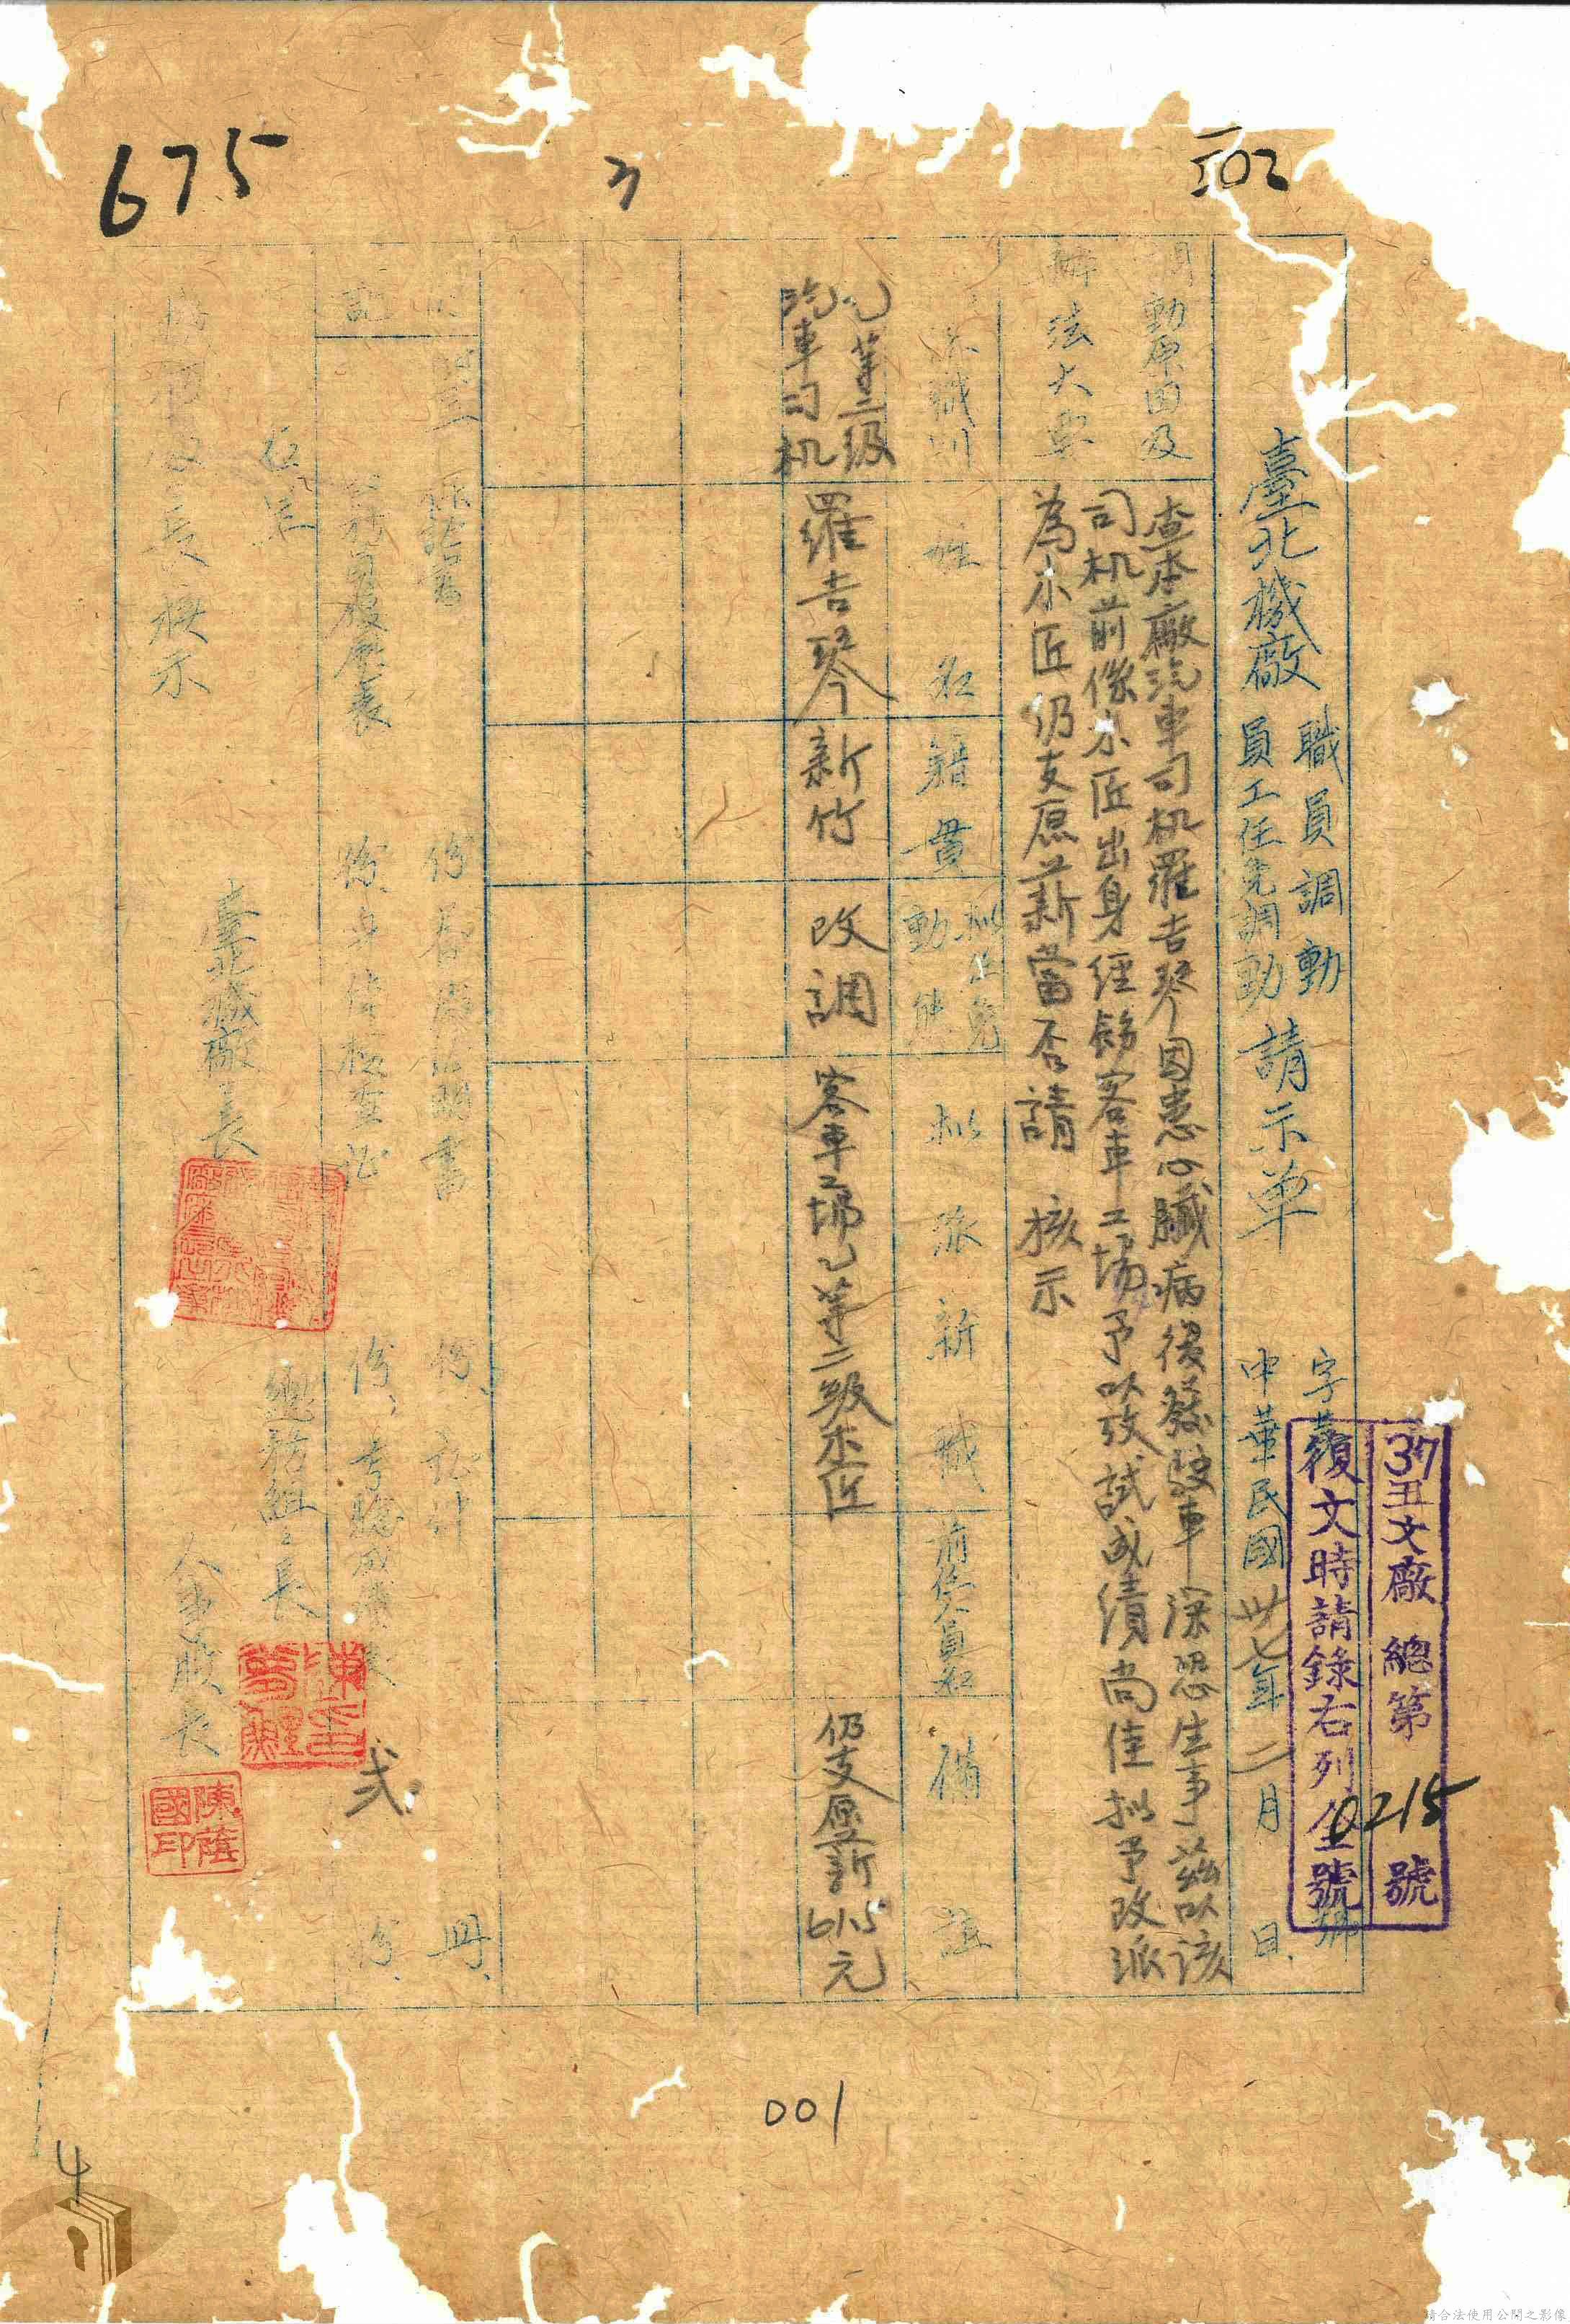 675
3
37丑文廠總第0215號
復文時請錄右列全號
字第 號
中華民國卅七年二月 日
臺北機廠
職員調動
員工任免調動
請示單
調動原因及
辦法大要
查本廠汽車司机羅吉琴因患心臟病後發駛車深恐生事茲以該
司机前係木匠出身經飭客車工場予以攷試成績尚佳拟予改派
為木匠仍支原薪當否請 核示
原職別
姓名
籍貫
拟任免
動態
拟派新職
前任人員名
備註
乙等二級
汽車司机
羅吉琴
新竹
改調
客車工場乙等二級木匠
仍支原薪615元
附
記
保證書
份
證明書
份
計
冊
員履歷表
份
身体檢查證
份
考驗成績表
弍
份
右呈
長核示
臺北機廠長
總務組組長
人事股長
陳蔭國印
001
4
請合法使用公開之影像